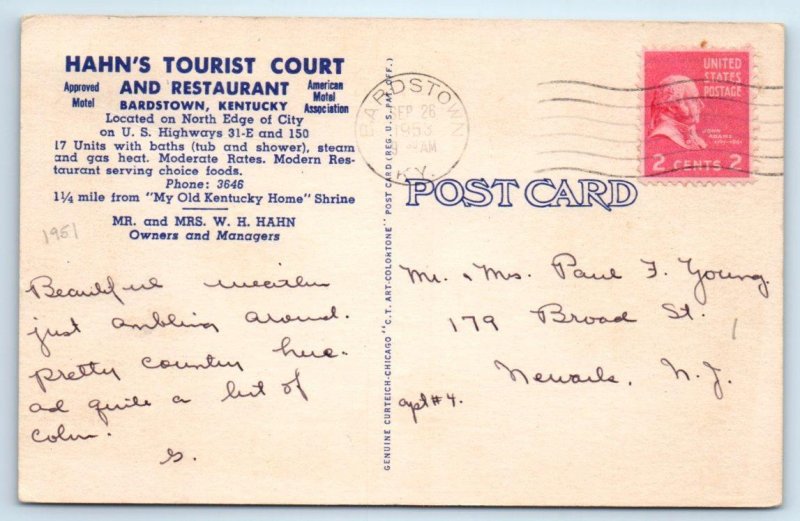 HAHN'S TOURIST COURT
Approved Motel
AND RESTAURANT
American Motel Association
BARDSTOWN, KENTUCKY
Located on North Edge of City
on U. S. Highways 31-E and 150
17 Units with baths (tub and shower), steam
and gas heat. Moderate Rates. Modern Res-
taurant serving choice foods.
Phone: 3646
1¼ mile from "My Old Kentucky Home" Shrine
MR. and MRS. W. H. HAHN
Owners and Managers
1951
Beautiful weather
just ambling around.
pretty country here.
ad quite a bit of
color.
S.
GENUINE CURTEICH-CHICAGO "C.T. ART-COLORTONE" POST CARD (REG. U.S. PAT. OFF.)
BARDSTOWN
SEP 26
1953
9 AM
KY.
UNITED
STATES
POSTAGE
JOHN
ADAMS
1797-1801
2 CENTS 2
POST CARD
Mr. & Mrs. Paul F. Young.
179 Broad St.
Newark, N.J.
apt #4.